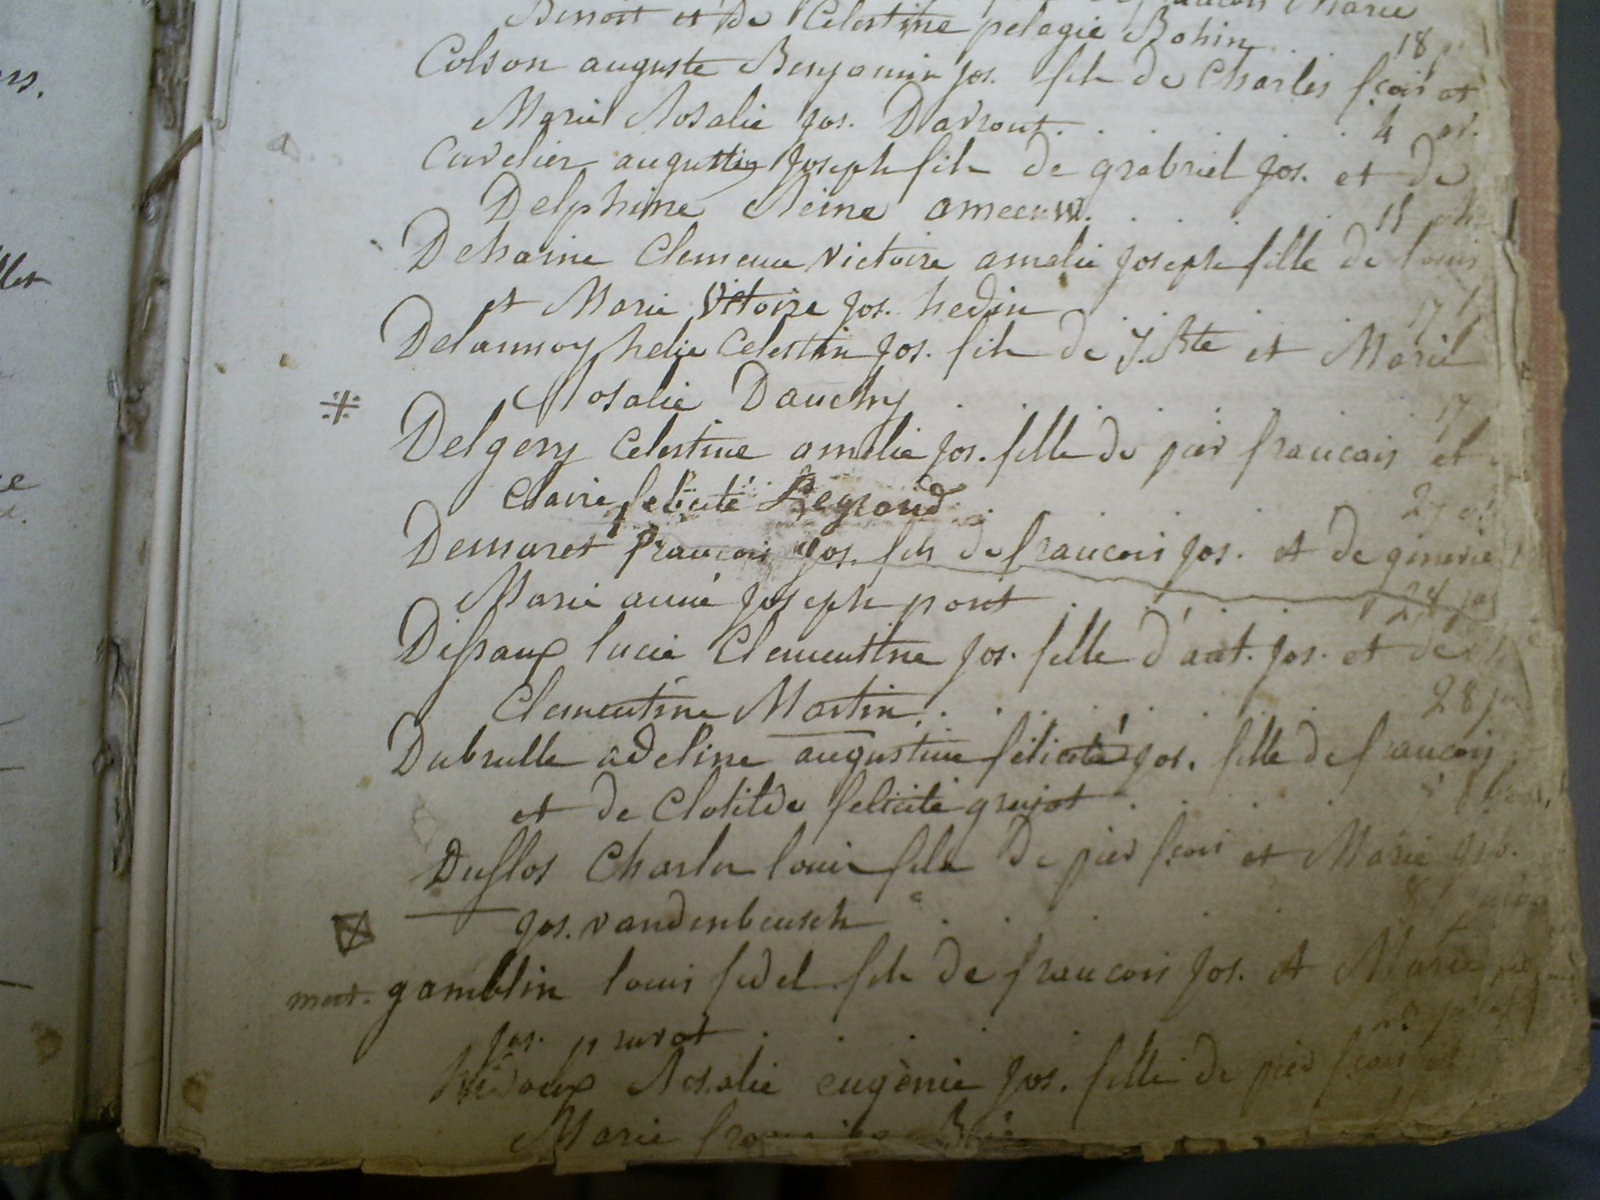 Benoit et de Celestine pelagie Bohin . . 18
Colson auguste Benjamin jos. fils de Charles fçois et
Marie Rosalie jos. Davrout . . . . 4 av.
Cuvelier augustin Joseph fils de grabriel jos. et de
Delphine Reine ameeuw. . . . 15
Dehaine Clemence victoire amelie joseph fille de louis
et Marie Vitoire jos. hedin . . . 17
Delannoy helie Celestin jos. fils de J. Bte et Marie
Rosalie Dauchy . . . . 17
Delgery Celestine amelie jos. fille de pier francois et
Claire felicité Legrand . . 27
Demaret francois jos. fils de francois jos. et de
Marie anne joseph pont . . . 28
Dissaux lucie Clementine jos. fille d'ant. jos. et de
Clementine Martin . . . . 28
Dubrulle adeline augustine félicité jos. fille de francois
et de Clotilde felicité grujot . . . .
Duflos Charles louis fils De pier fçois et Marie
jos. vandenbeusch . . . .
mort. gamblin louis fidel fils de francois jos. et Marie
jos. pruvot . . . .
hédoux Rosalie eugènie jos. fille de pier fçois et
Marie